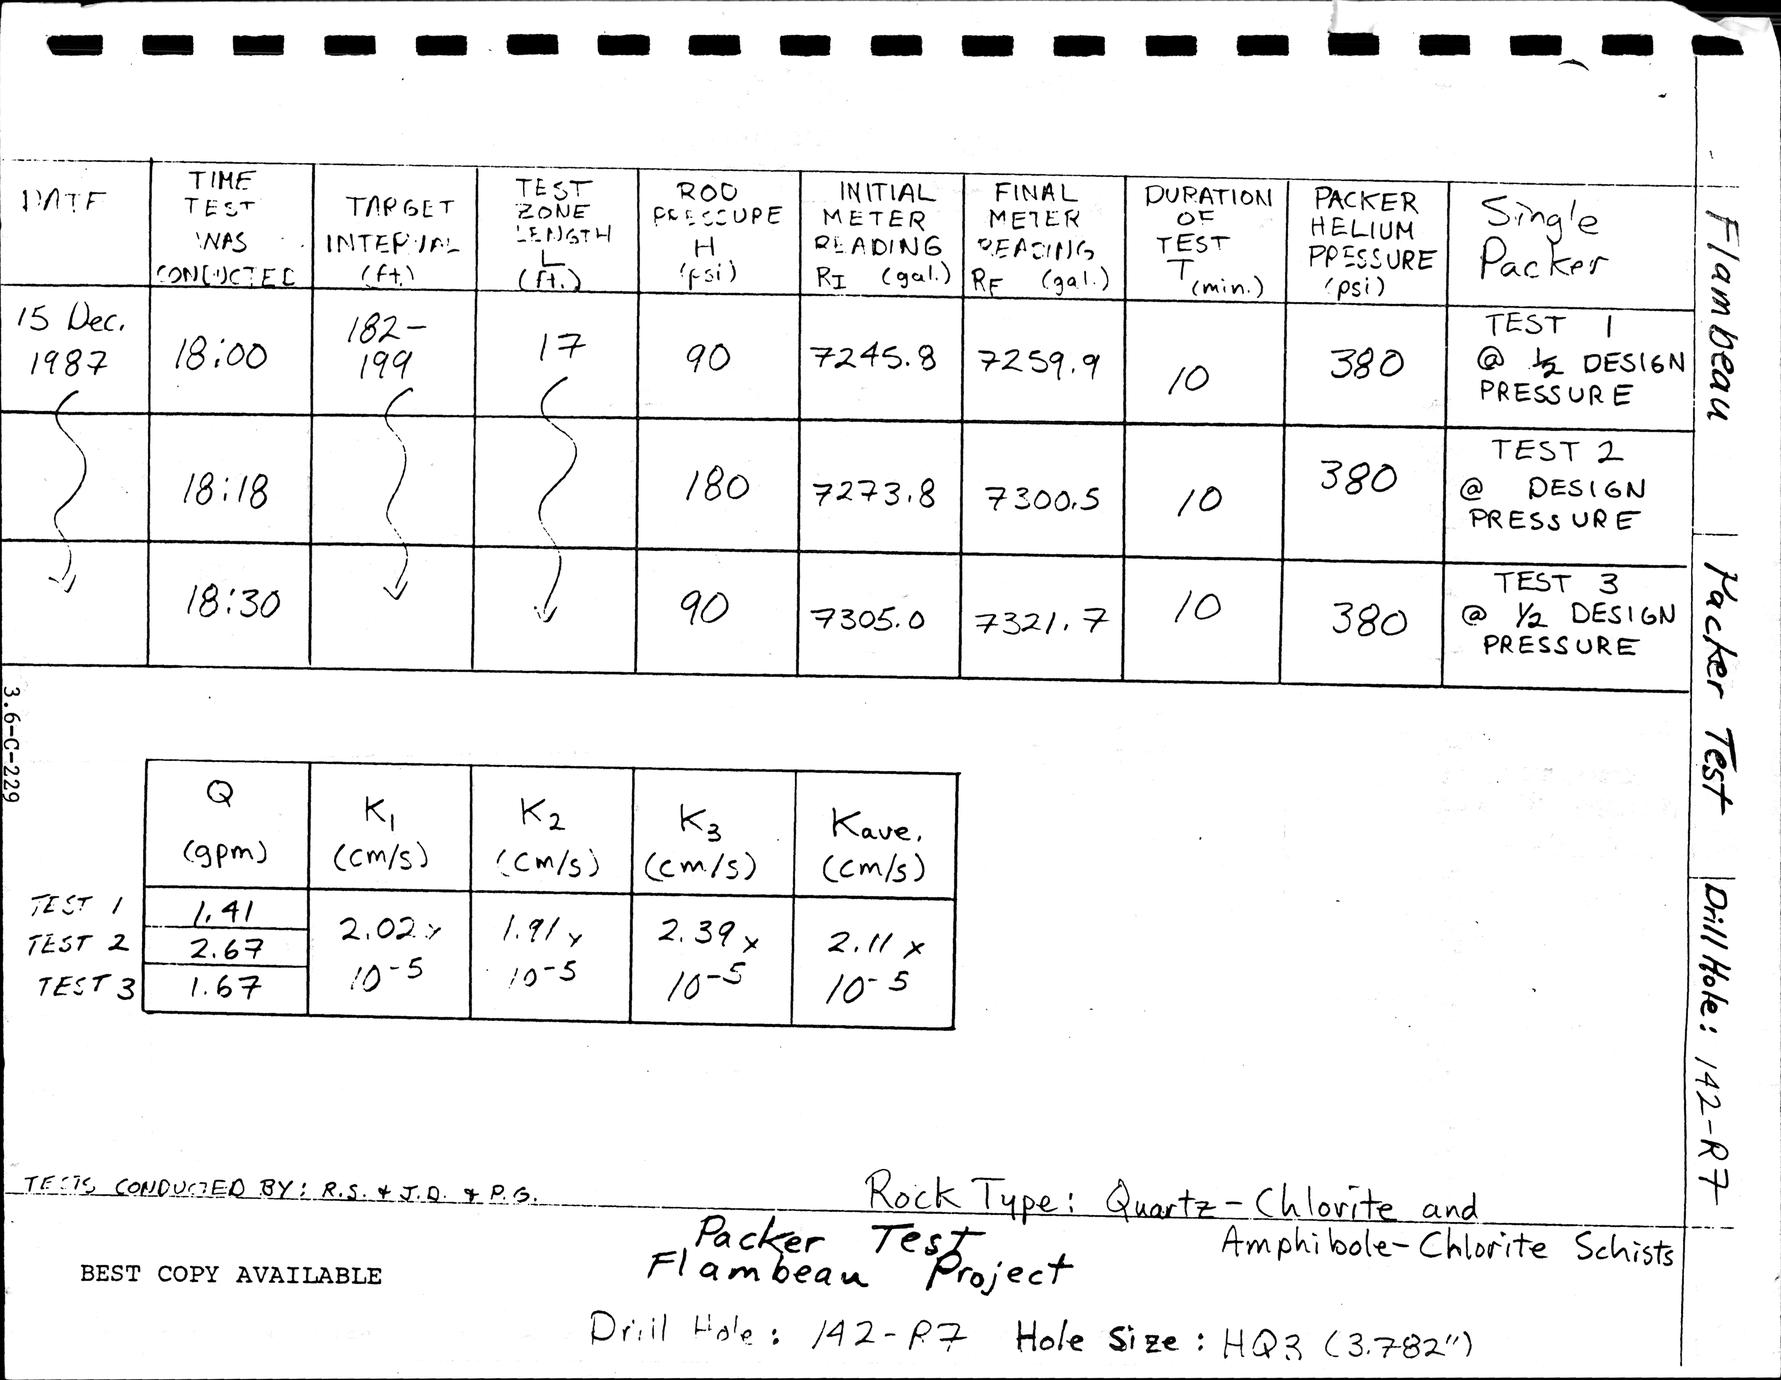 DATE
TIME
TEST
WAS
CONDUCTED
TARGET
INTERVAL
(ft.)
TEST
ZONE
LENGTH
L
(ft.)
ROD
PRESSURE
H
(psi)
INITIAL
METER
READING
RI (gal.)
FINAL
METER
READING
RF (gal.)
DURATION
OF
TEST
T (min.)
PACKER
HELIUM
PRESSURE
(psi)
Single
Packer
15 Dec.
1987
18:00
182-
199
17
90
7245.8
7259.9
10
380
TEST 1
@ 1/2 DESIGN
PRESSURE
18:18
180
7273.8
7300.5
10
380
TEST 2
@ DESIGN
PRESSURE
18:30
90
7305.0
7321.7
10
380
TEST 3
@ 1/2 DESIGN
PRESSURE
Flambeau Packer Test Drill Hole: 142-R7
3.6-C-229
Q
(gpm)
K1
(cm/s)
K2
(cm/s)
K3
(cm/s)
Kave.
(cm/s)
TEST 1 1.41
TEST 2 2.67
TEST 3 1.67
2.02 x
10-5
1.91 x
10-5
2.39 x
10-5
2.11 x
10-5
TESTS CONDUCTED BY: R.S. & J.D. & P.G.
Rock Type: Quartz-Chlorite and
Amphibole-Chlorite Schists
Packer Test
Flambeau Project
BEST COPY AVAILABLE
Drill Hole: 142-R7 Hole Size: HQ3 (3.782")